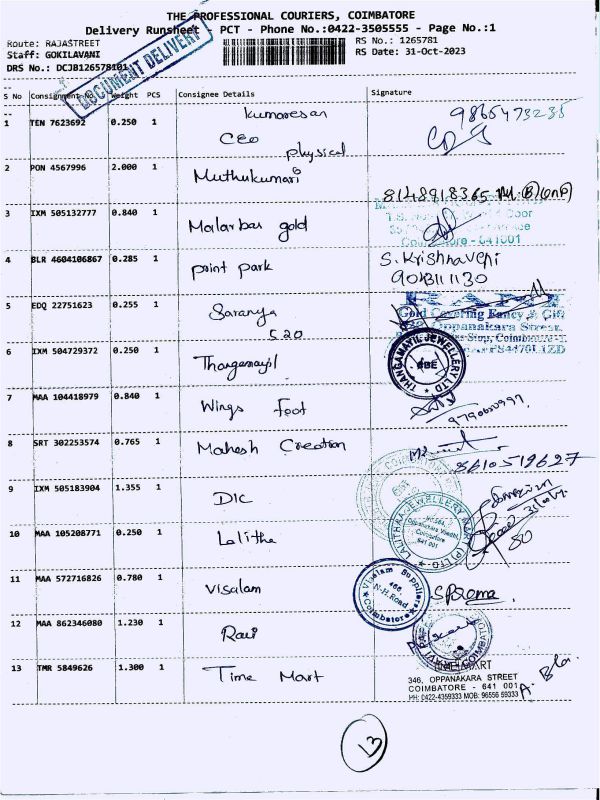 THE PROFESSIONAL COURIERS, COIMBATORE
Delivery Runsheet - PCT - Phone No.:0422-3505555 - Page No.:1
Route: RAJASTREET
RS No.: 1265781
Staff: GOKILAVANI
RS Date: 31-Oct-2023
DRS No.: DCJB126578101
DOCUMENT DELIVERY
S No Consignment No Weight PCS Consignee Details Signature
1 TEN 7623692 0.250 1 Kumaresan 9865473235
CEO
physical
2 PON 4567996 2.000 1 Muthukumari
8148918365
3 IXM 505132777 0.840 1 Malarbar gold
641001
4 BLR 4604106867 0.285 1 point park S. Krishnaveni
5 EDQ 22751623 0.255 1 Saranya
520
Gold Covering Fancy & Gift
Oppanakara Street,
6 IXM 504729372 0.250 1 Thangamayil
THANGAMAYIL JEWELLERY LTD
CBE
7 MAA 104418979 0.840 1 Wings Foot
8 SRT 302253574 0.765 1 Mahesh Creation
8610519627
9 IXM 505183904 1.355 1 DIC
10 MAA 105208771 0.250 1 Lalitha
LALITHAA JEWELLERY MART (P) LTD
Coimbatore
641 001
11 MAA 572716826 0.780 1 Visalam
Visalam Suppliers
466
N.H.Road
Coimbatore
12 MAA 862346080 1.230 1 Ravi
13 TMR 5849626 1.300 1 Time Mart
TIME MART
346, OPPANAKARA STREET
COIMBATORE - 641 001
PH: 0422-4359333 MOB: 96556 59333
13